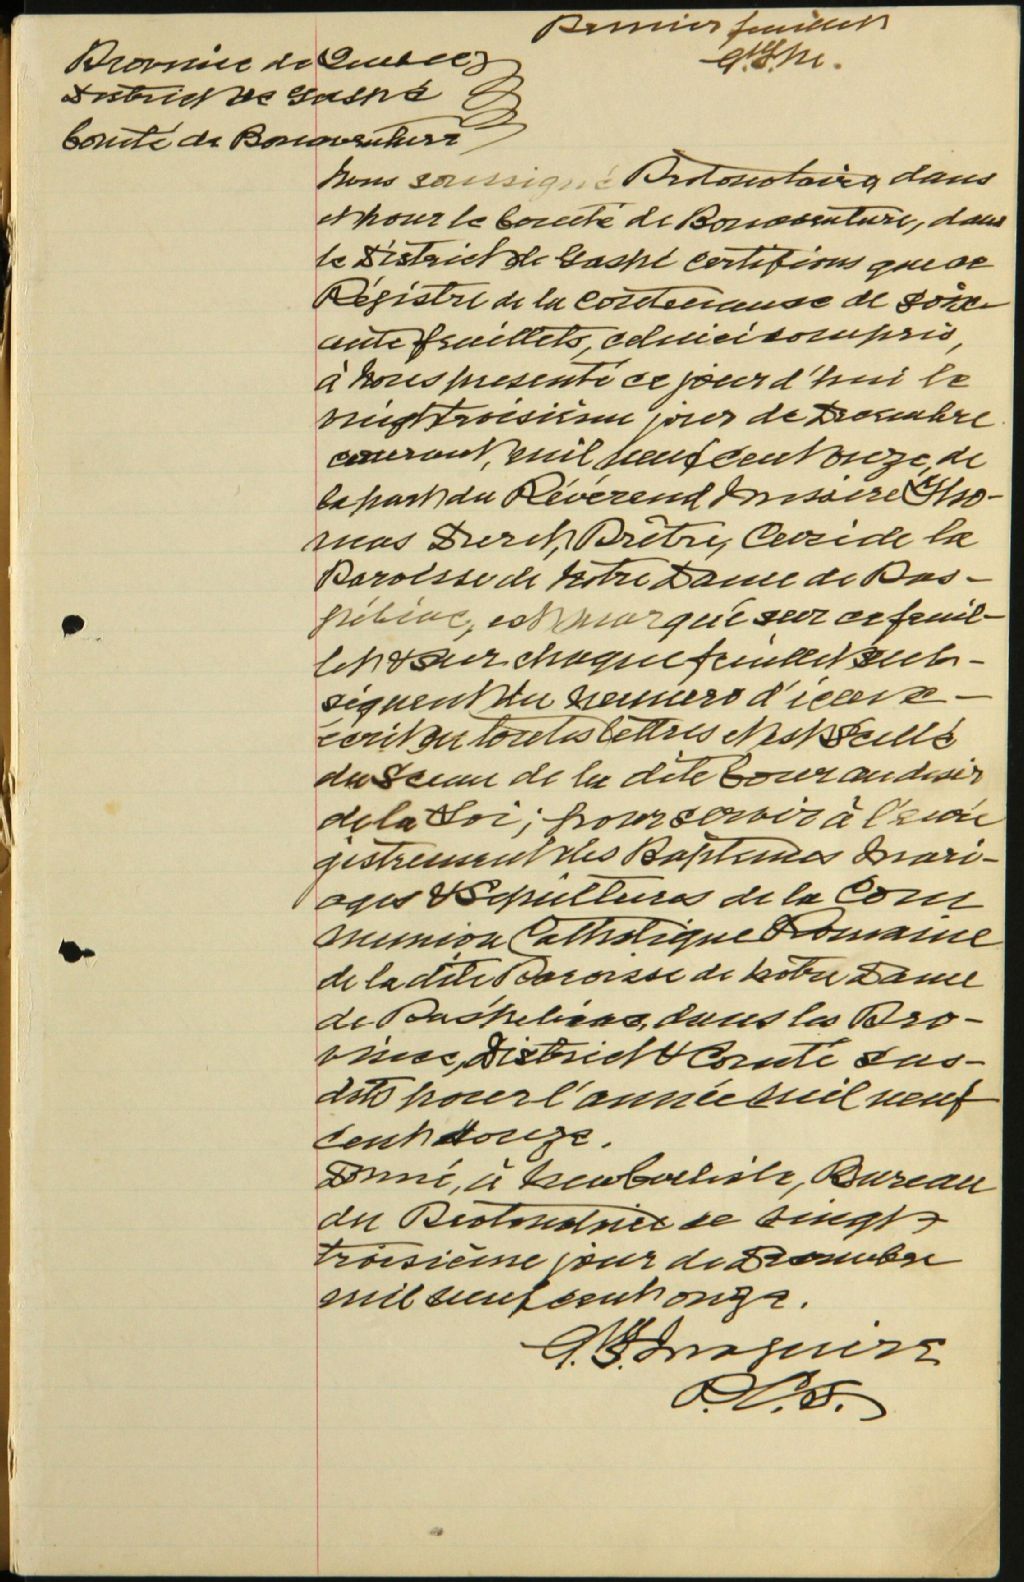 Premier feuillet
Province de Québec
District de Gaspé
Comté de Bonaventure
Nous soussigné Protonotaire dans
et pour le Comté de Bonaventure, dans
le District de Gaspé certifions que ce
Régistre de la contenance de soix-
ante feuillets, celui ici compris,
à nous presenté ce jour d'hui le
vingt troisième jour de Decembre
courant, mil neuf cent onze, de
la part du Révérend Messire Tho-
mas Duret, Prêtre, Curé de la
Paroisse de Notre Dame de Pas-
pébiac, est marqué sur ce feuil-
let & sur chaque feuillet sub-
séquent du numero d'iceux
écrit en toutes lettres et est scellé
du Sceau de la dite Cour au desir
de la Loi; pour servir à l'enré
gistrement des Baptemes Mari-
ages & Sepultures de la Com
munion Catholique Romaine
de la dite Paroisse de Notre Dame
de Paspebiac, dans les Pro-
vince, District & Comté sus-
dits pour l'année mil neuf
cent douze.
Donné, à New Carlisle, Bureau
du Protonotaire ce vingt
troisième jour de Decembre
mil neuf cent onze.
Maguire
P.C.S.